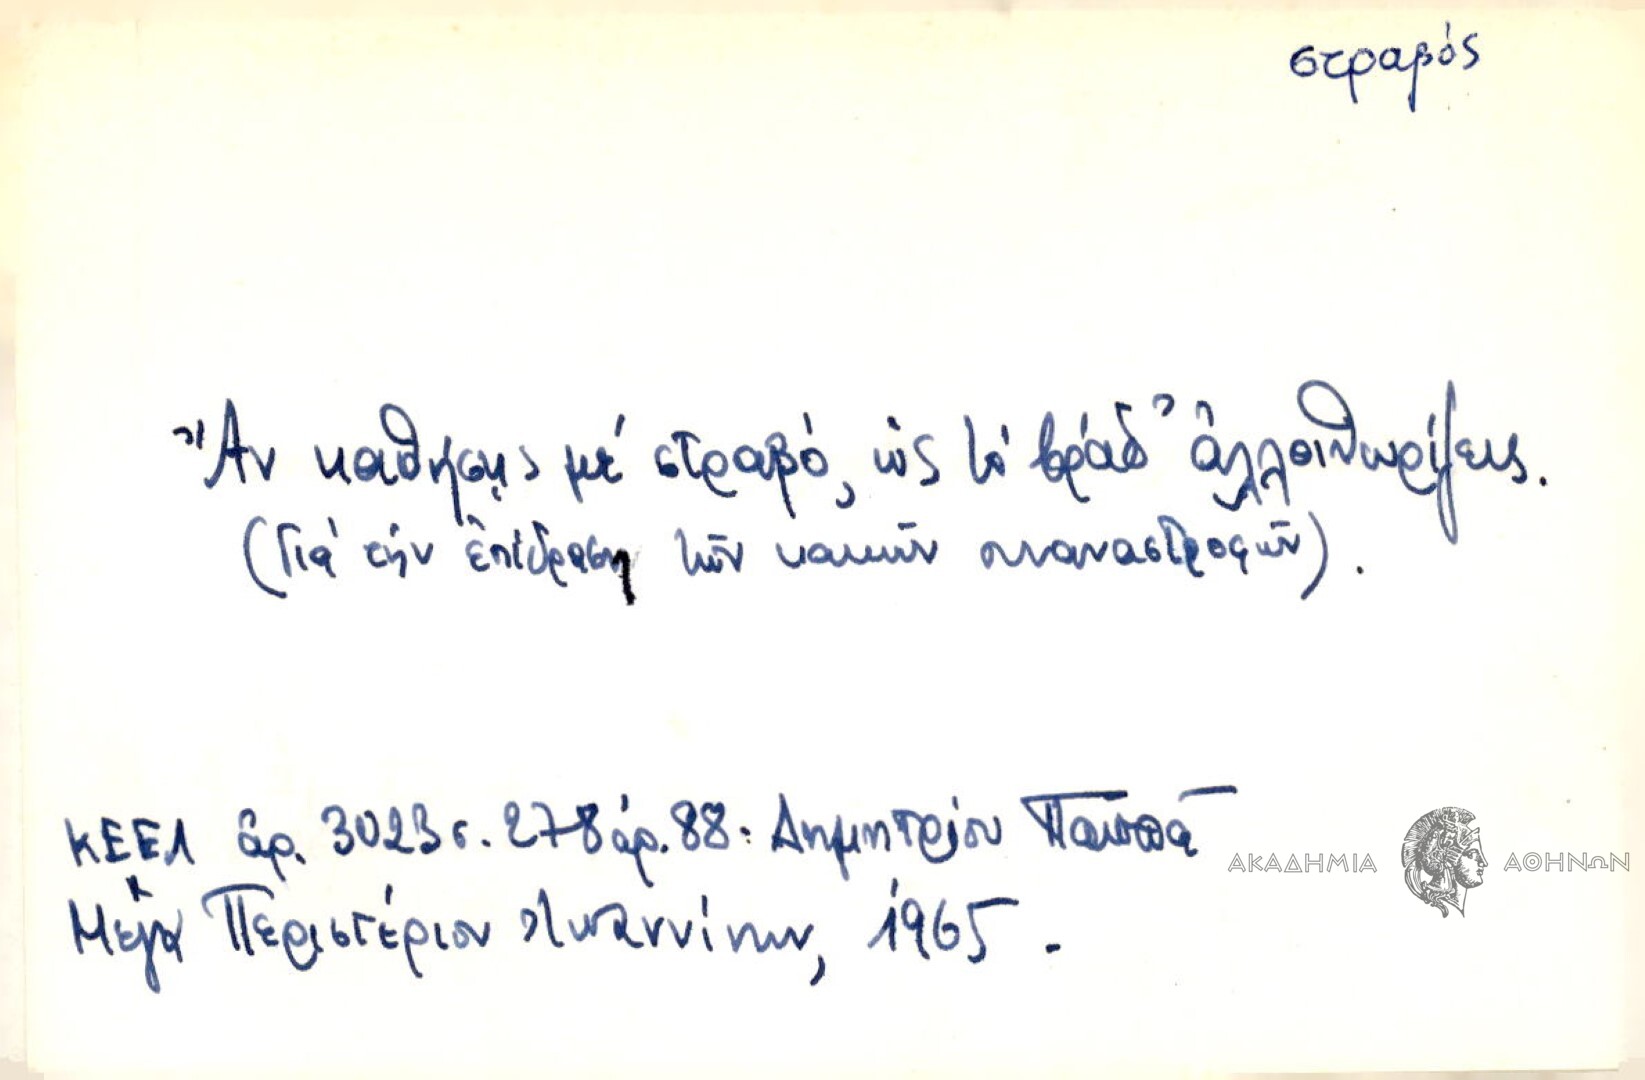 στραβός
Ἂν καθήσῃς μέ στραβό, ὡς τό βράδ' ἀλλοιθωρίζεις.
(Γιά τήν ἐπίδραση τῶν κακῶν συναναστροφῶν).
ΚΕΕΛ ἀρ. 3023 σ. 278 ἀρ. 88: Δημητρίου Παππᾶ
ΑΚΑΔΗΜΙΑ ΑΘΗΝΩΝ
Μέγα Περιστέριον Ἰωαννίνων, 1965.